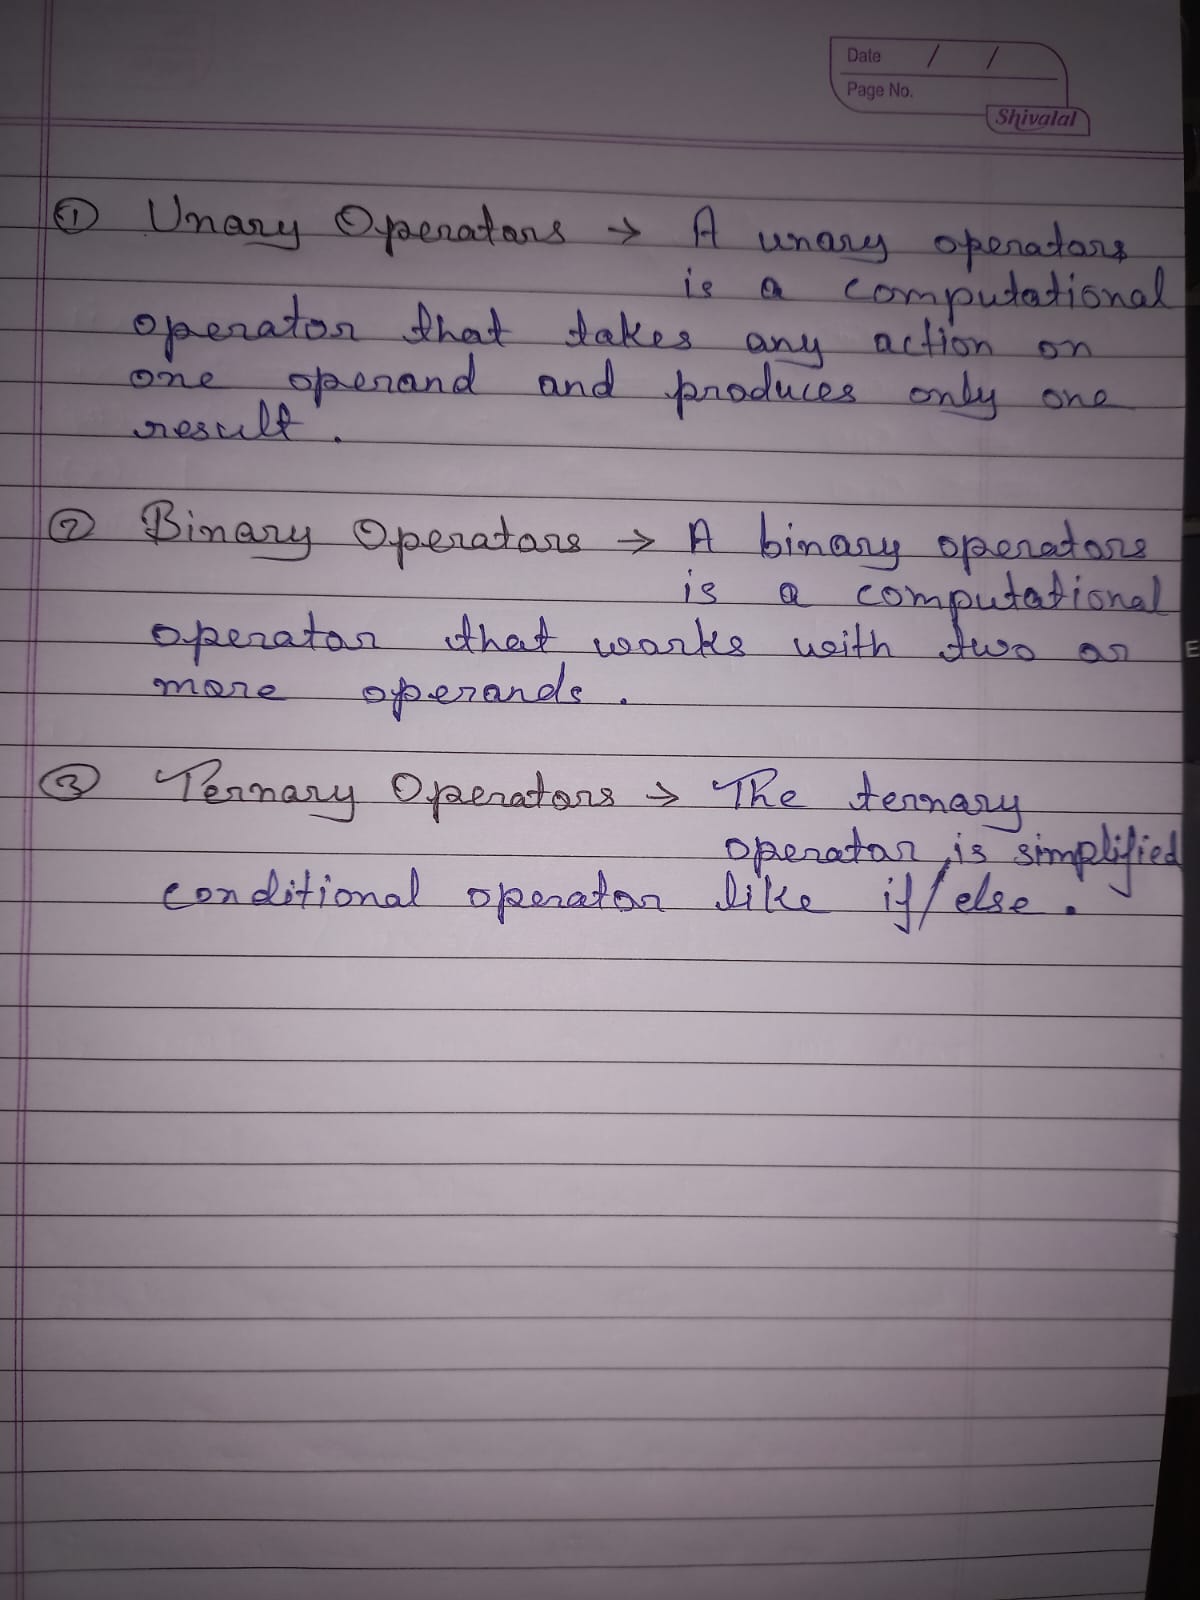 Date / /
Page No.
Shivalal
① Unary Operators → A unary operators
is a computational
operator that takes any action on
one operand and produces only one
result.
② Binary Operators → A binary operators
is a computational
operator that works with two or
more operands.
③ Ternary Operators → The ternary
operator is simplified
conditional operator like if/else.
E